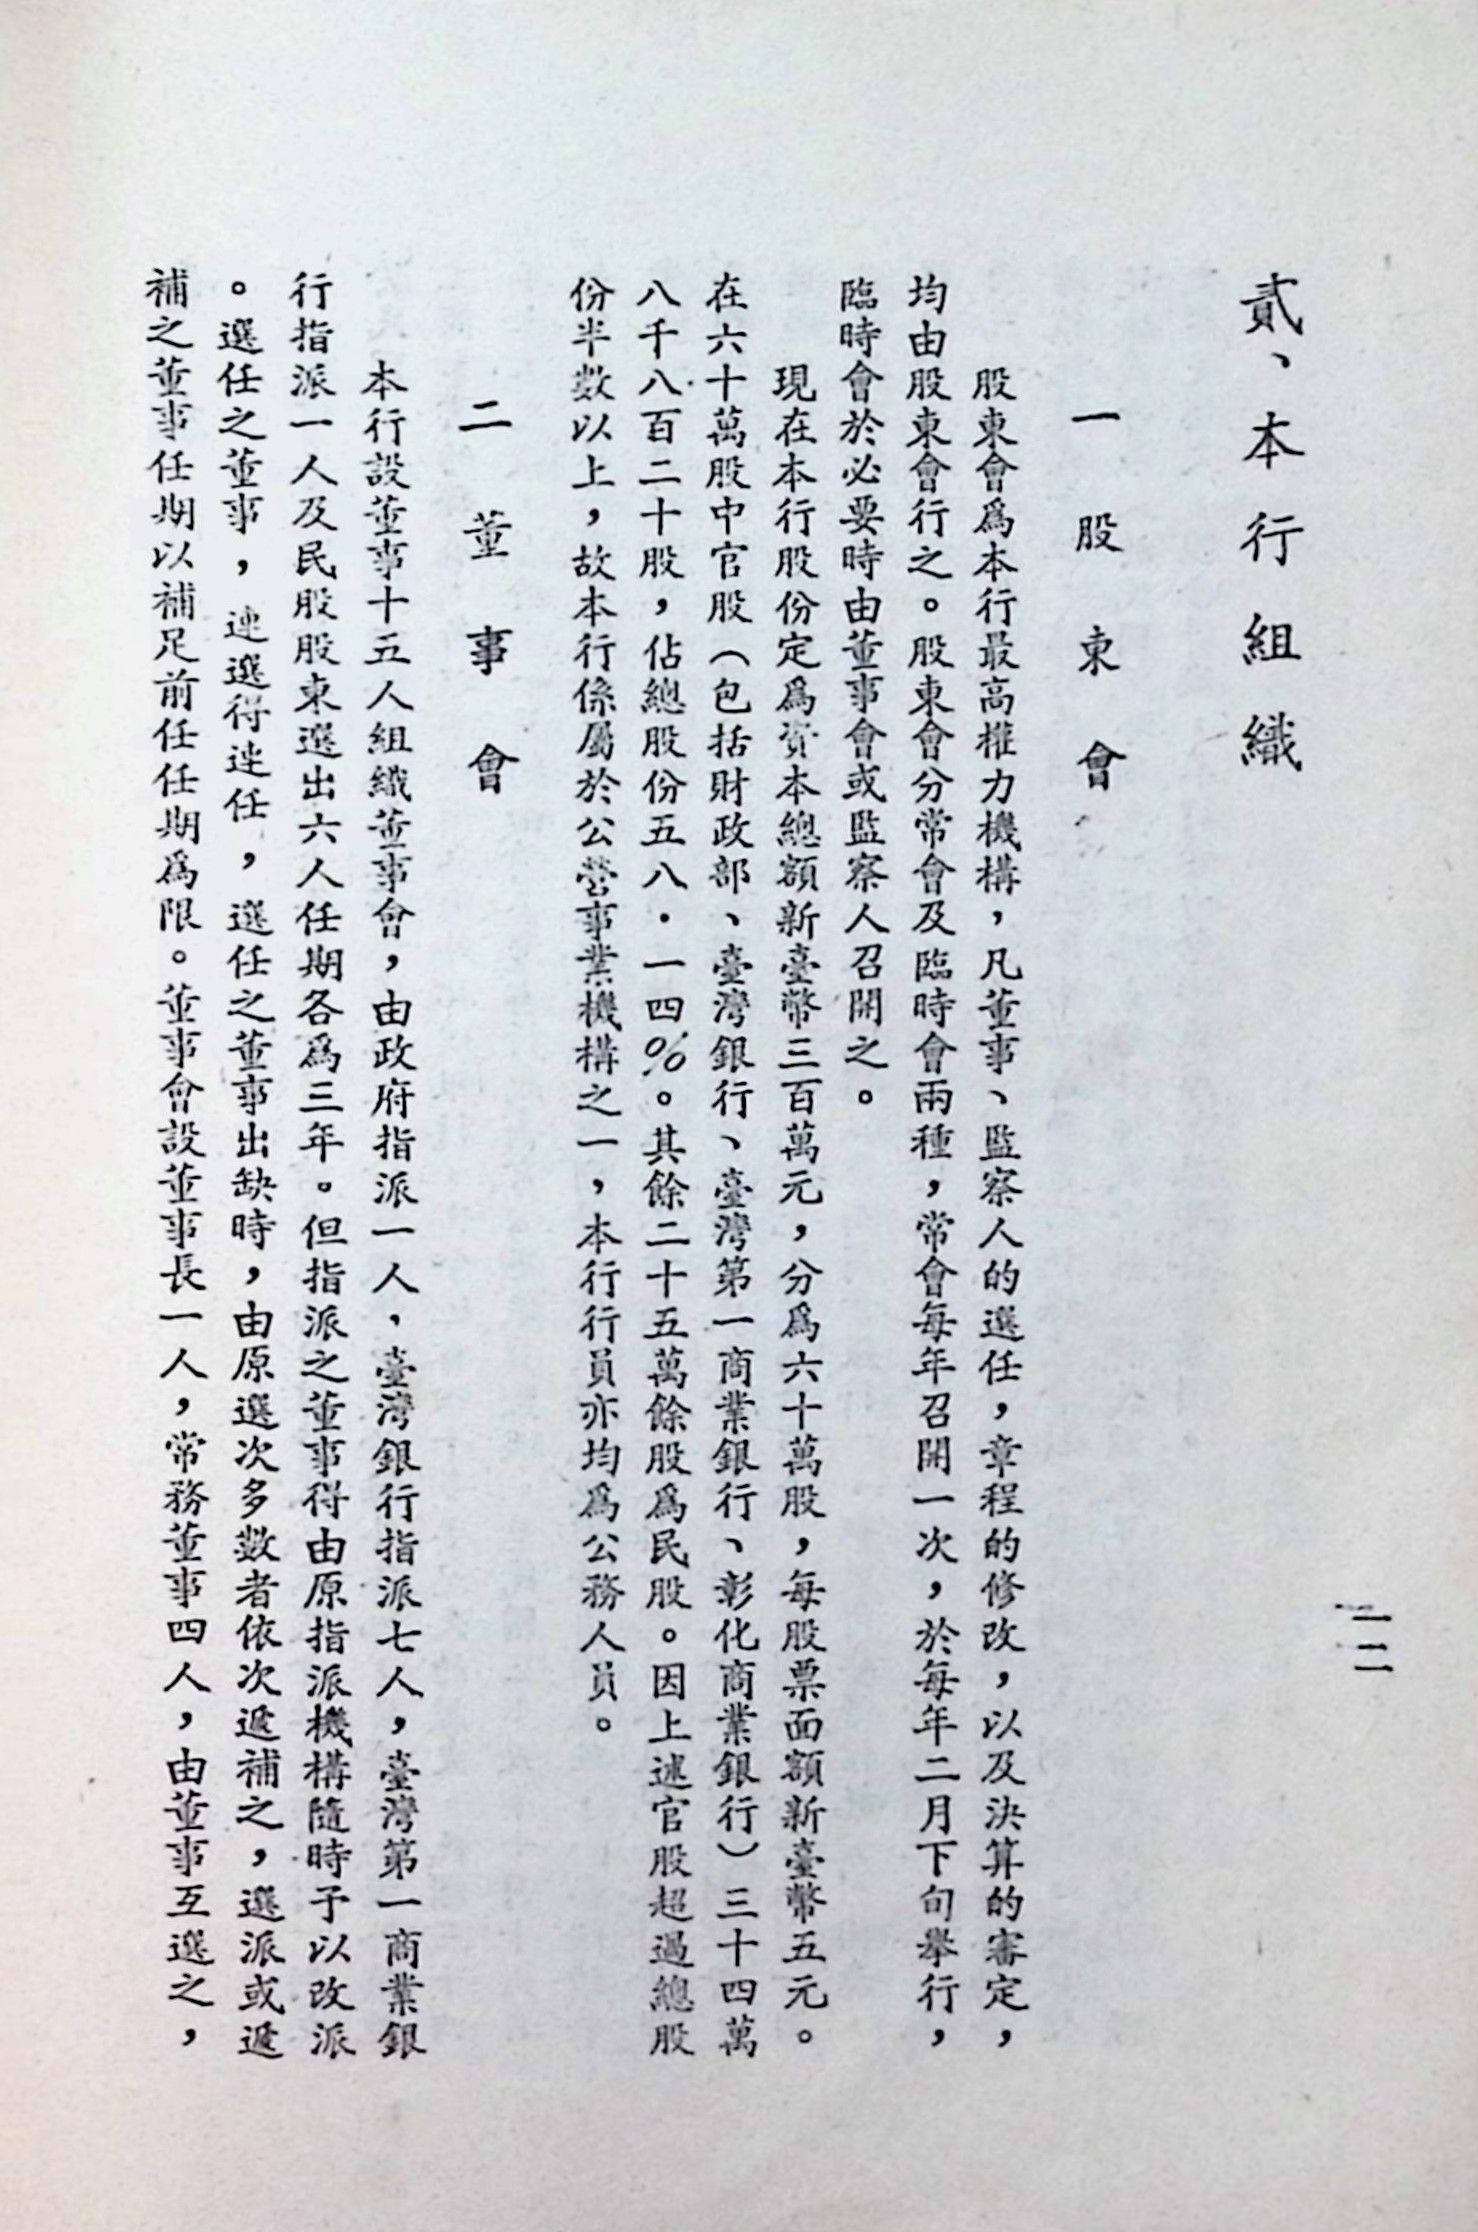 貳、本行組織
一股東會
股東會爲本行最高權力機構，凡董事、監察人的選任，章程的修改，以及決算的審定，
均由股東會行之。股東會分常會及臨時會兩種，常會每年召開一次，於每年二月下旬舉行，
臨時會於必要時由董事會或監察人召開之。
現在本行股份定爲資本總額新臺幣三百萬元，分爲六十萬股，每股票面額新臺幣五元。
在六十萬股中官股（包括財政部、臺灣銀行、臺灣第一商業銀行、彰化商業銀行）三十四萬
八千八百二十股，佔總股份五八．一四％。其餘二十五萬餘股爲民股。因上述官股超過總股
份半數以上，故本行係屬於公營事業機構之一，本行行員亦均爲公務人員。
二董事會
本行設董事十五人組織董事會，由政府指派一人，臺灣銀行指派七人，臺灣第一商業銀
行指派一人及民股股東選出六人任期各爲三年。但指派之董事得由原指派機構隨時予以改派
。選任之董事，連選得連任，選任之董事出缺時，由原選次多數者依次遞補之，選派或遞
補之董事任期以補足前任任期爲限。董事會設董事長一人，常務董事四人，由董事互選之，
一二